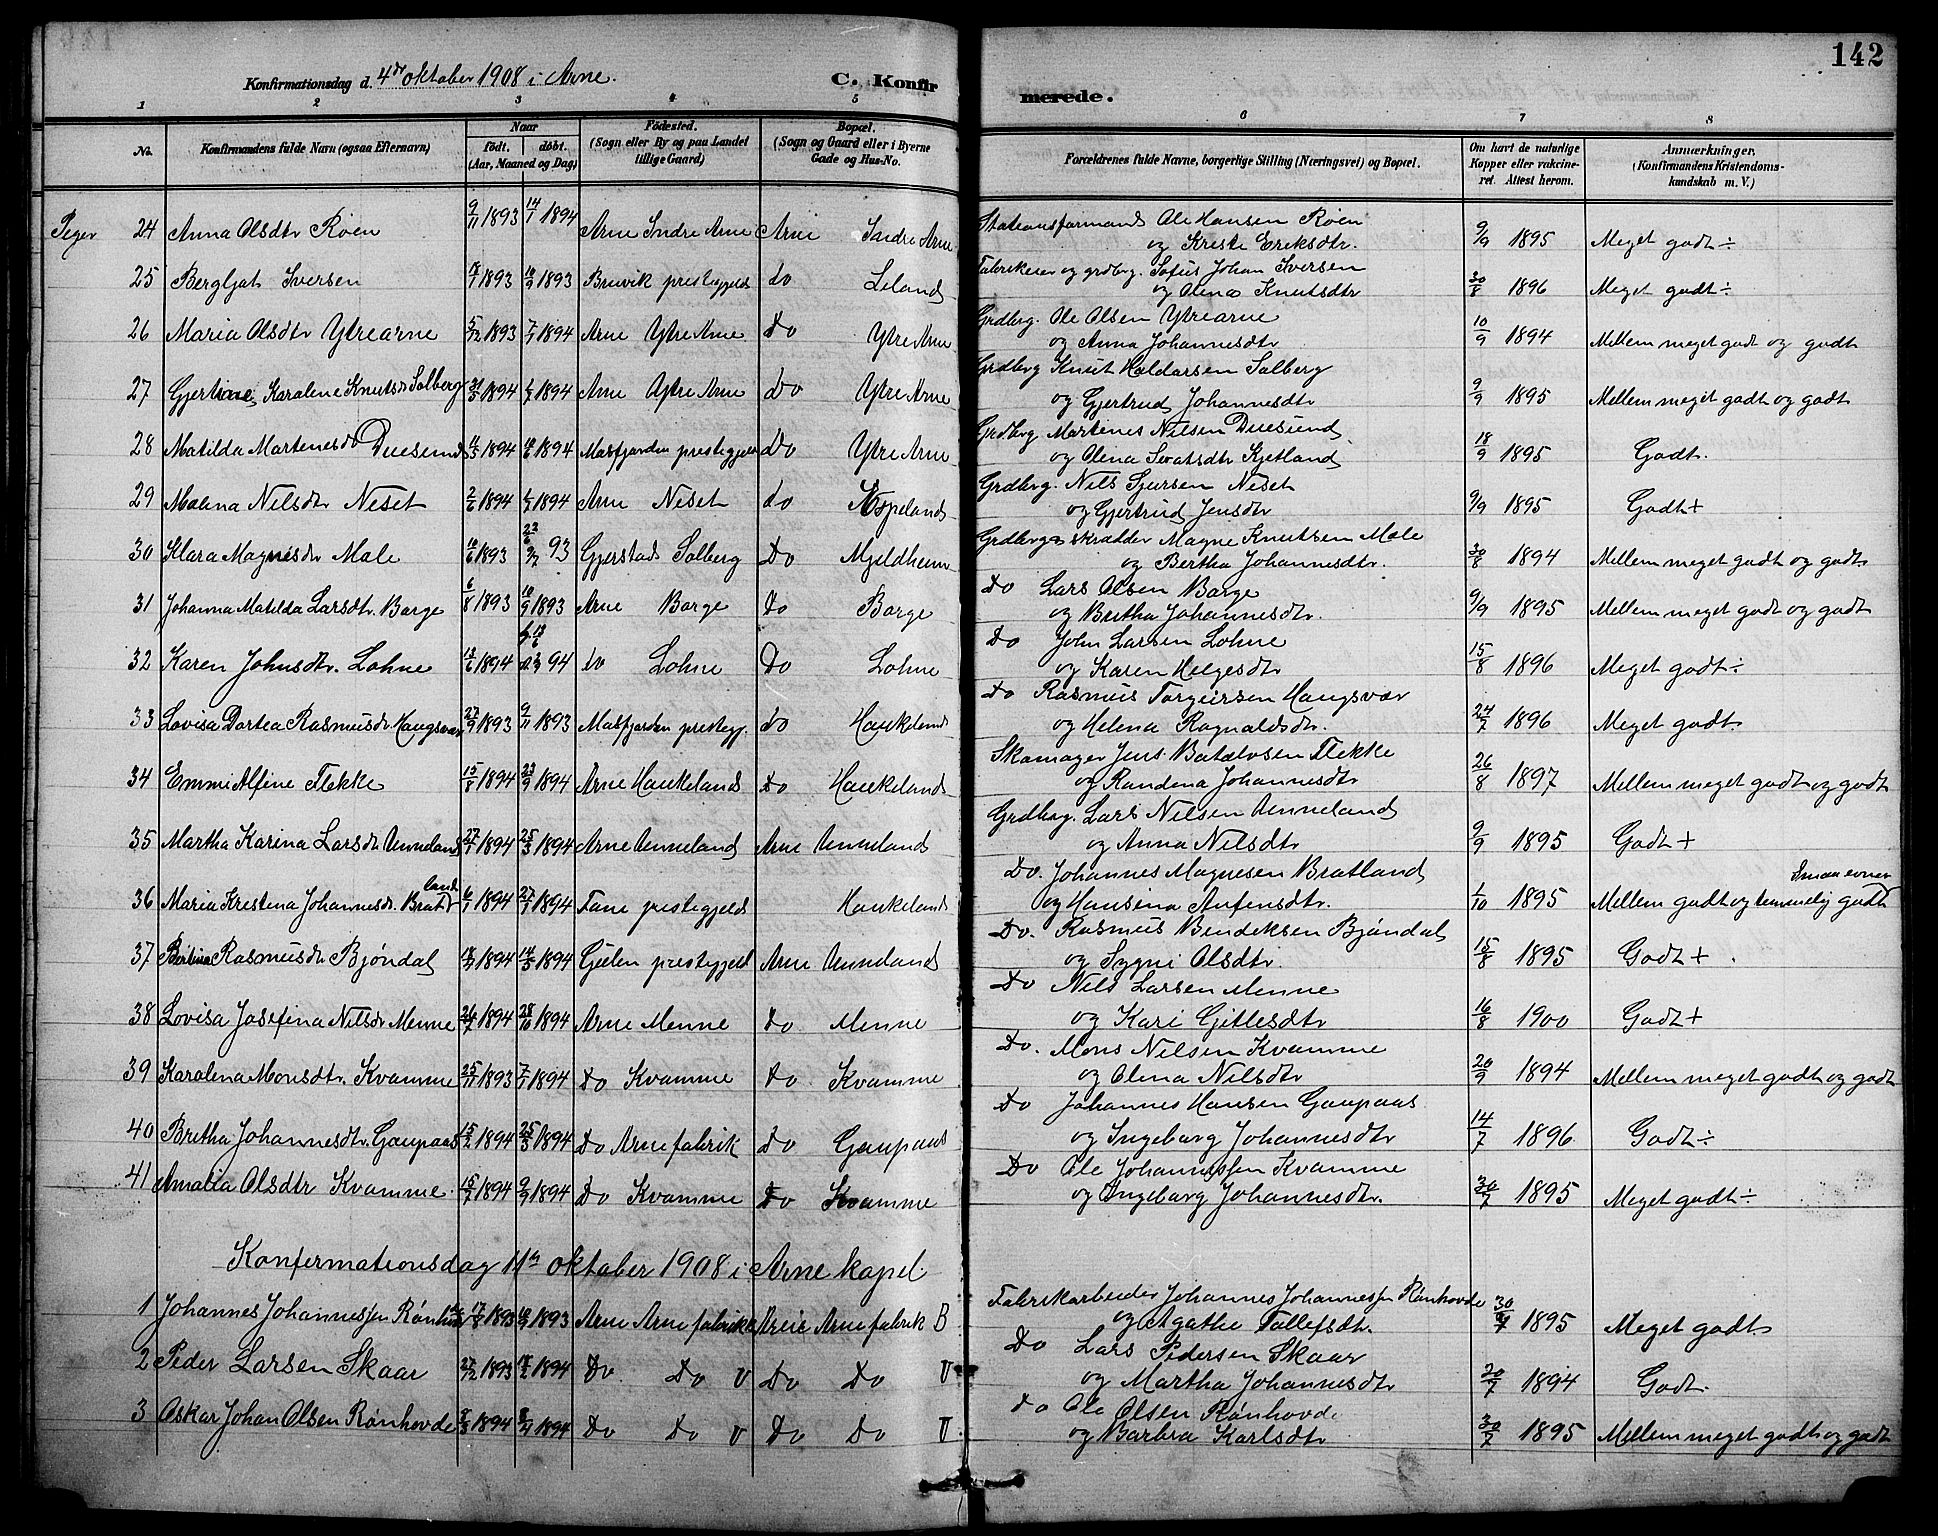 142
Konfirmationsdag d. 4de oktober 1908 i Arne.
C. Konfirmerede.
1 2 3 4 5 6 7 8
No.
Konfirmandens fulde Navn (ogsaa Efternavn)
Naar
født. døbt.
(Aar, Maaned og Dag)
Fødested.
(Sogn eller By og paa Landet
tillige Gaard)
Bopæl.
(Sogn og Gaard eller i Byerne
Gade og Hus-No.
Forældrenes fulde Navne, borgerlige Stilling (Næringsvei) og Bopæl.
Om havt de naturlige
Kopper eller vakcine-
ret. Attest herom.
Anmærkninger,
(Konfirmandens Kristendoms-
kundskab m. V.)
Piger 24 Anna Olsdtr Røen 9/11 1893 14/1 1894 Arne Indre Arne Arne Indre Arne Stationsformand Ole Hansen Røen
og Kriste Eriksdtr. 9/9 1895 Meget godt ÷
25 Bergljot Iversen 1893 1893 Bruvik prestegjeld do Leland Fabrikeier og grdbrg. Sofus Johan Iversen
og Olena Knutsdtr 30/8 1896 Meget godt ÷
26 Maria Olsdtr Ytrearne 5/12 1893 7/1 1894 Arne Ytre Arne Do Ytre Arne Grdbrg. Ole Olsen Ytrearne
og Anna Johannesdtr 10/9 1894 Mellem meget godt og godt
27 Gjertine Karolene Knutsd Solberg 31/3 1894 1894 Arne Ytre Arne do Ytre Arne Grdbrg Knut Haldorsen Solberg
og Gjertrud Johannesdtr 9/9 1895 Mellem meget godt og godt
28 Matilda Martenesdr Duesund 1894 1894 Masfjorden prestegjeld do Ytre Arne Grdbrg Martines Nilsen Duesund
og Olena Sevatsdtr Kjetland 18/9 1895 Godt.
29 Malena Nilsdtr Neset 2/6 1894 1894 Arne Neset do Espeland Grdbrg. Nils Sjursen Neset
og Gjertrud Jensdtr 9/9 1895 Godt +
30 Klara Magnesdr Male 1893 93 Gjerstad Solberg Do Mjeldheim Grdbrg og skrædder Magne Knutsen Male
og Bertha Johannesdtr. 30/8 1894 Mellem meget godt og godt
31 Johanna Matilda Larsdtr. Borge 6/8 1893 10/9 1893 Arne Borge do Borge Do Lars Olsen Borge
og Bretha Johannesdtr. 9/9 1895 Mellem meget godt og godt
32 Karen Johnsdtr. Lohne 1894 94 do Lohne Do Lohne Do John Larsen Lohne
og Karen Helgesdtr 15/8 1896 Meget godt ÷
33 Lovisa Dortea Rasmusdr Haugsvær 27/9 1893 9/11 1893 Masfjorden prestegj. do Haukeland Do Rasmus Torgeirsen Haugsvær
og Helena Ragnaldsdtr. 24/7 1896 Meget godt.
34 Emmi Alfine Flekke 15/8 1894 23/9 1894 Arne Haukeland Do Haukeland Skomager Jens Batalvsen Flekke
og Randena Johannesdtr 26/8 1897 Mellem meget godt og godt
35 Martha Karina Larsdr Unneland 1894 25/3 1894 Arne Unneland Arne Unneland Grdbrg. Lars Nilsen Unneland
og Anna Nilsdtr 9/9 1895 Godt +
36 Maria Kristena Johannesdr. Bratland 1894 1894 Fane prestegjeld Haukeland Do. Johannes Magnesen Bratland
og Hansina Anfensdtr. 1/10 1895 Mellem godt og temmelig godt Smaa evner
37 Bertina Rasmusdr Bjøndal 1894 1894 Gulen prestegjeld Arne Unneland Do. Rasmus Bendiksen Bjøndal
og Sygni Olsdtr. 15/8 1895 Godt +
38 Lovisa Josefina Nilsdr Menne 1894 28/10 1894 Arne Menne Do Menne Do Nils Larsen Menne
og Kari Gitlesdtr 16/8 1900 Godt +
39 Karolena Monsdtr. Kvamme 25/11 1893 7/1 1894 Do Kvamme Do Kvamme Do. Mons Nilsen Kvamme
og Olena Nilsdtr 20/9 1894 Mellem meget godt og godt
40 Bretha Johannesdtr. Gaupaas 15/2 1894 25/3 1894 Do Arne fabrik Do Gaupaas Do Johannes Hansen Gaupaas
og Ingeborg Johannesdtr 14/7 1896 Godt ÷
41 Amalia Olsdtr Kvamme 1894 1894 Do Kvamme Do Kvamme Do Ole Johannessen Kvamme
og Ingeborg Johannesdtr. 30/7 1895 Meget godt ÷
Konfermationsdag 11te oktober 1908 i Arne kapel
1 Johannes Johannessen Rønhovde 1893 1893 Arne Arne fabrikk Arne Arne fabrik B Fabrikarbeider Johannes Johannessen Rønhovde
og Agathe Tollefsdtr. 1895 Meget godt
2 Peder Larsen Skaar 27/12 1893 1894 Do Do V Do Do V Do Lars Pedersen Skaar
og Martha Johannesdtr 20/7 1894 Godt.
3 Oskar Johan Olsen Rønhovde 1894 1894 Do Do V Do Do V do Ole Olsen Rønhovde
og Barbra Karlsdtr 30/7 1895 Mellem meget godt og godt